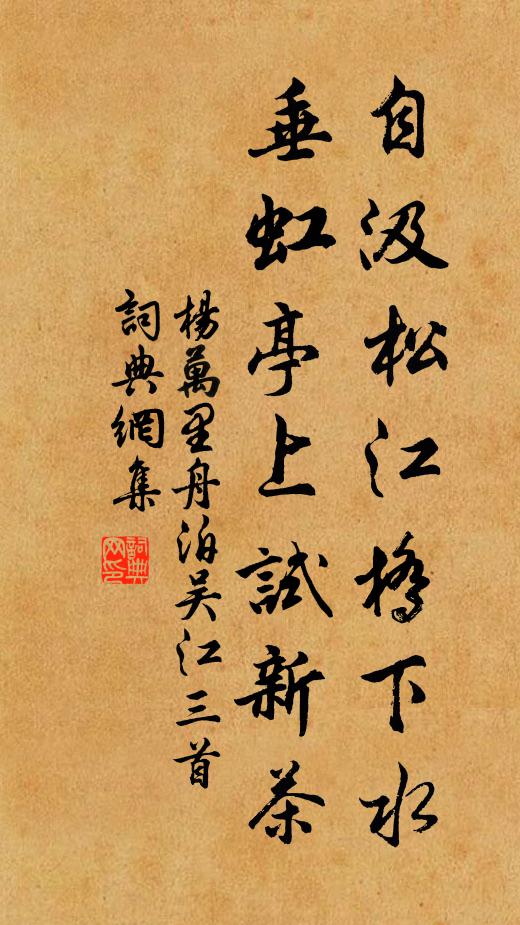 自汲松江橋下水
垂虹亭上試新茶
楊萬里舟泊吴江三首
詞典網集
詞典网印